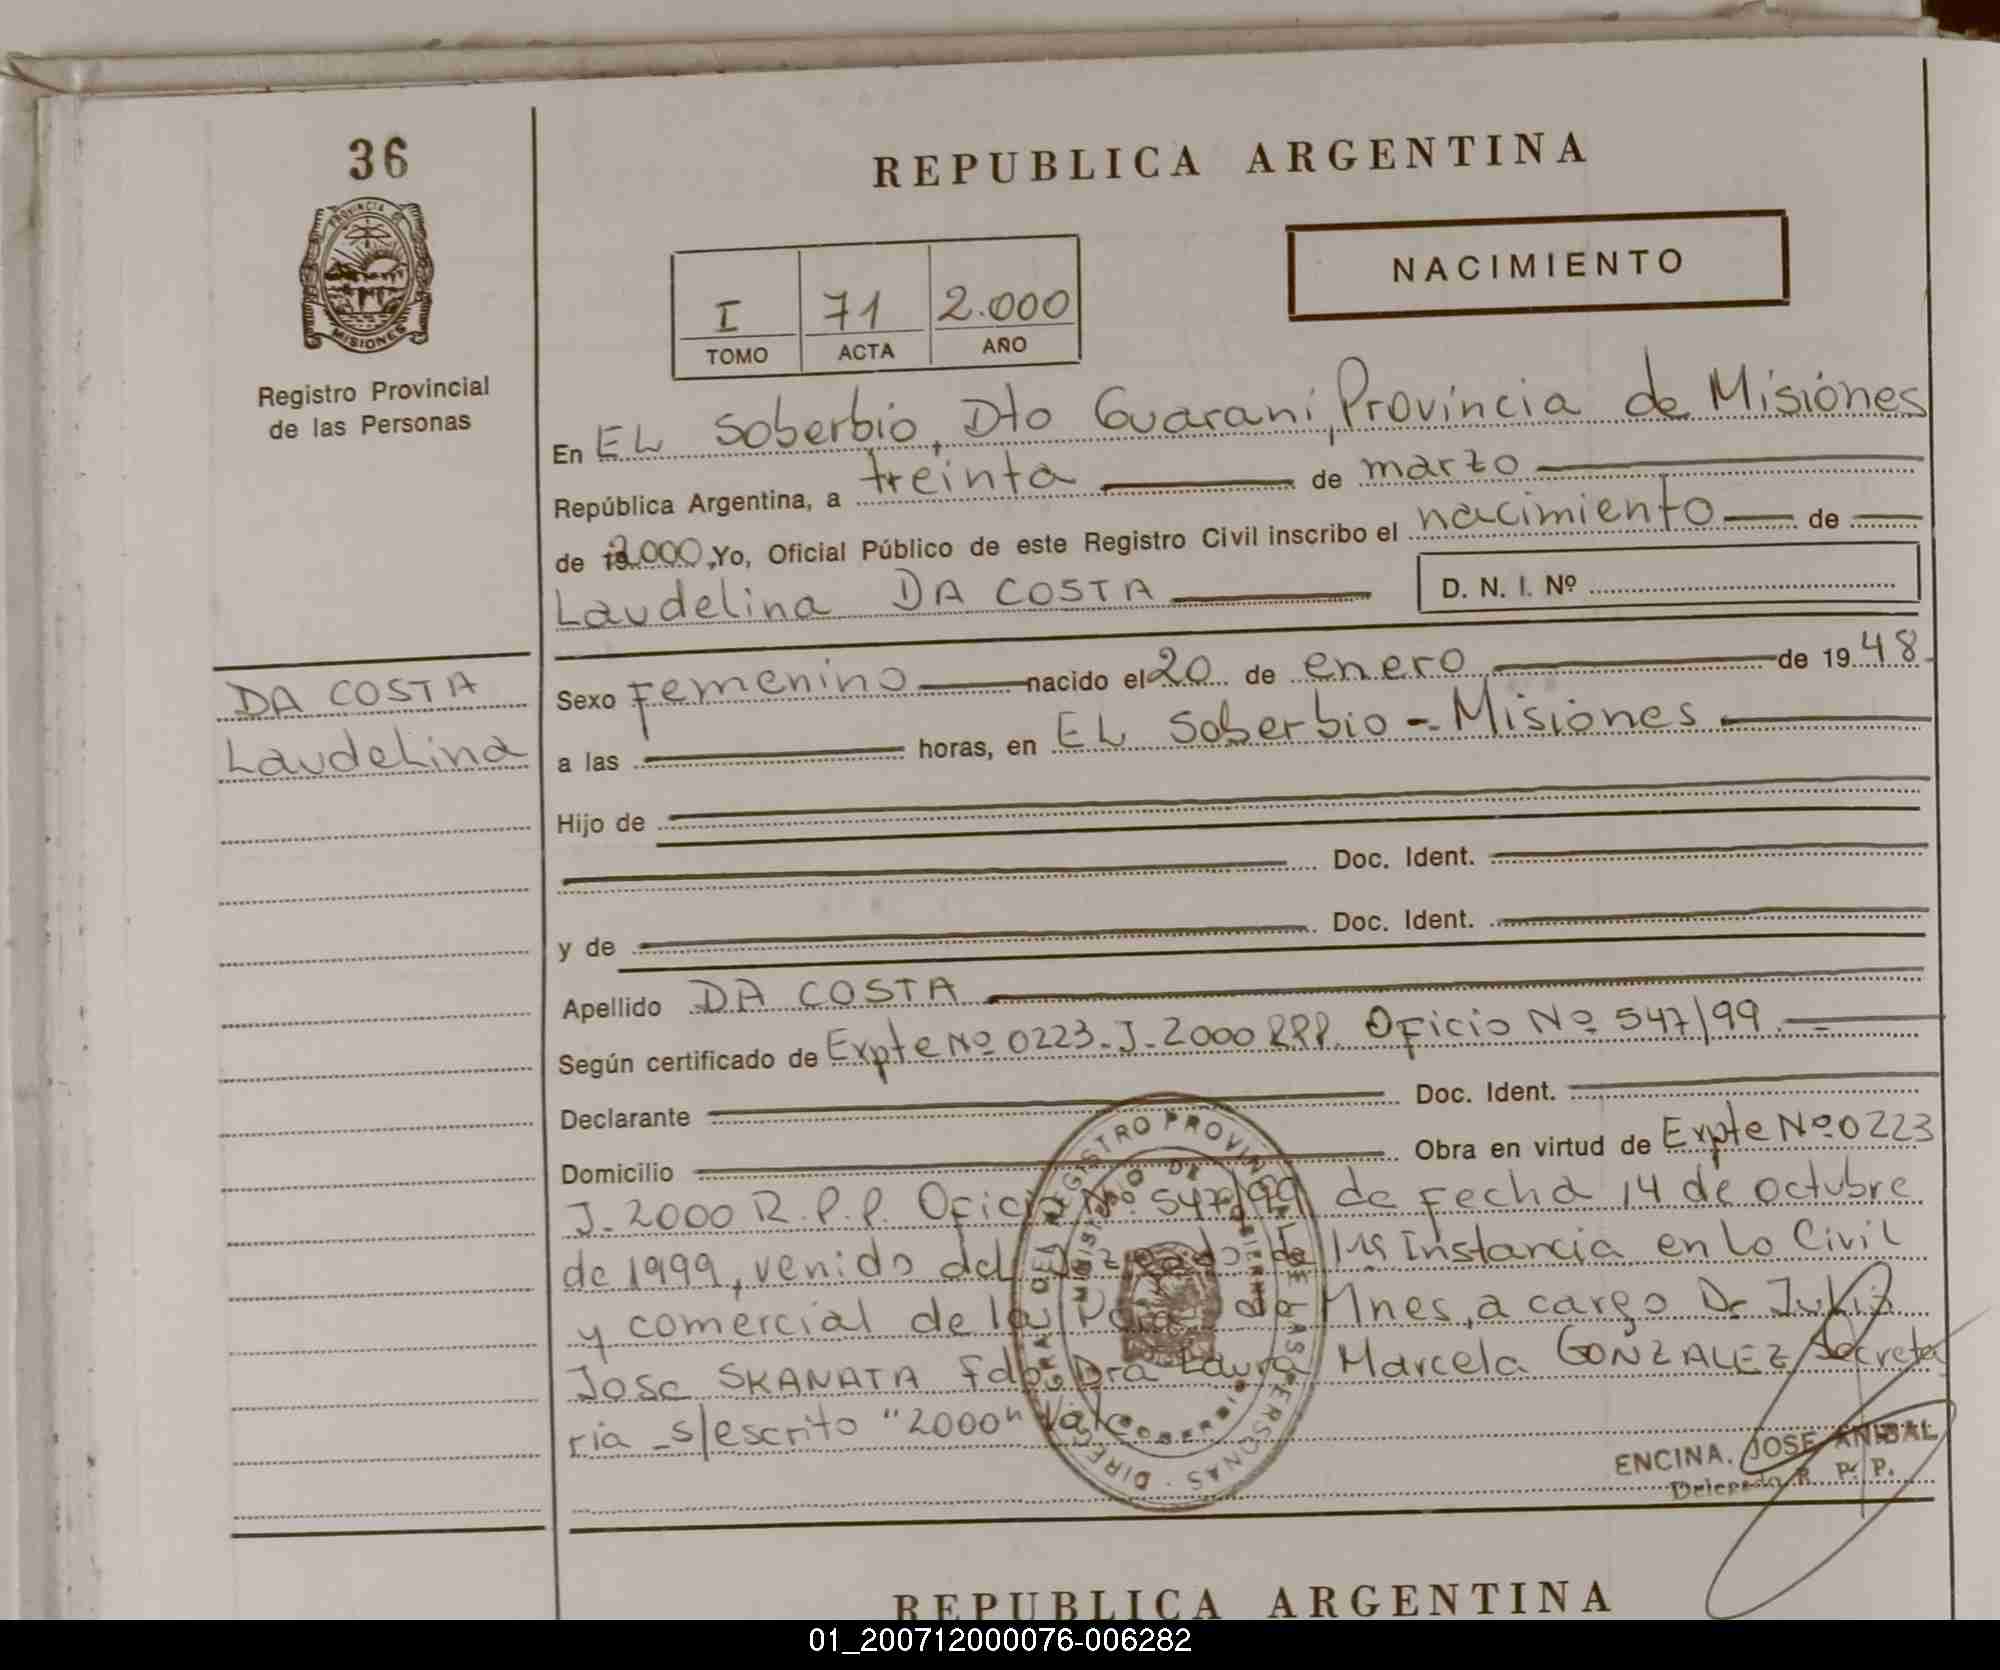 36
PROVINCIA DE
MISIONES
Registro Provincial
de las Personas
REPUBLICA ARGENTINA
NACIMIENTO
I 71 2.000
TOMO ACTA AÑO
En EL Soberbio, Dto Guarani, Provincia de Misiones
República Argentina, a treinta de marzo
de 2.000, Yo, Oficial Público de este Registro Civil inscribo el nacimiento de
Laudelina DA COSTA D. N. I. Nº
DA COSTA
Laudelina
Sexo Femenino nacido el 20 de enero de 1948
a las horas, en EL Soberbio - Misiones
Hijo de
Doc. Ident.
y de Doc. Ident.
Apellido DA COSTA
Según certificado de Expte Nº 0223-J-2000 R.P.P. Oficio Nº 547/99
Declarante Doc. Ident.
Domicilio Obra en virtud de Expte Nº 0223
J-2000 R.P.P. Oficio Nº 547/99 de Fecha 14 de octubre
de 1999, venido del Juzgado de 1ra Instancia en Lo Civil
y comercial de la de Mnes, a cargo Dr Julio
Jose SKANATA Fdo. Dra Laura Marcela GONZALEZ Secreta
ria - s/escrito "2000" Vale
ENCINA, JOSE ANIBAL
Delegado R. P. P.
REPUBLICA ARGENTINA
01_200712000076-006282